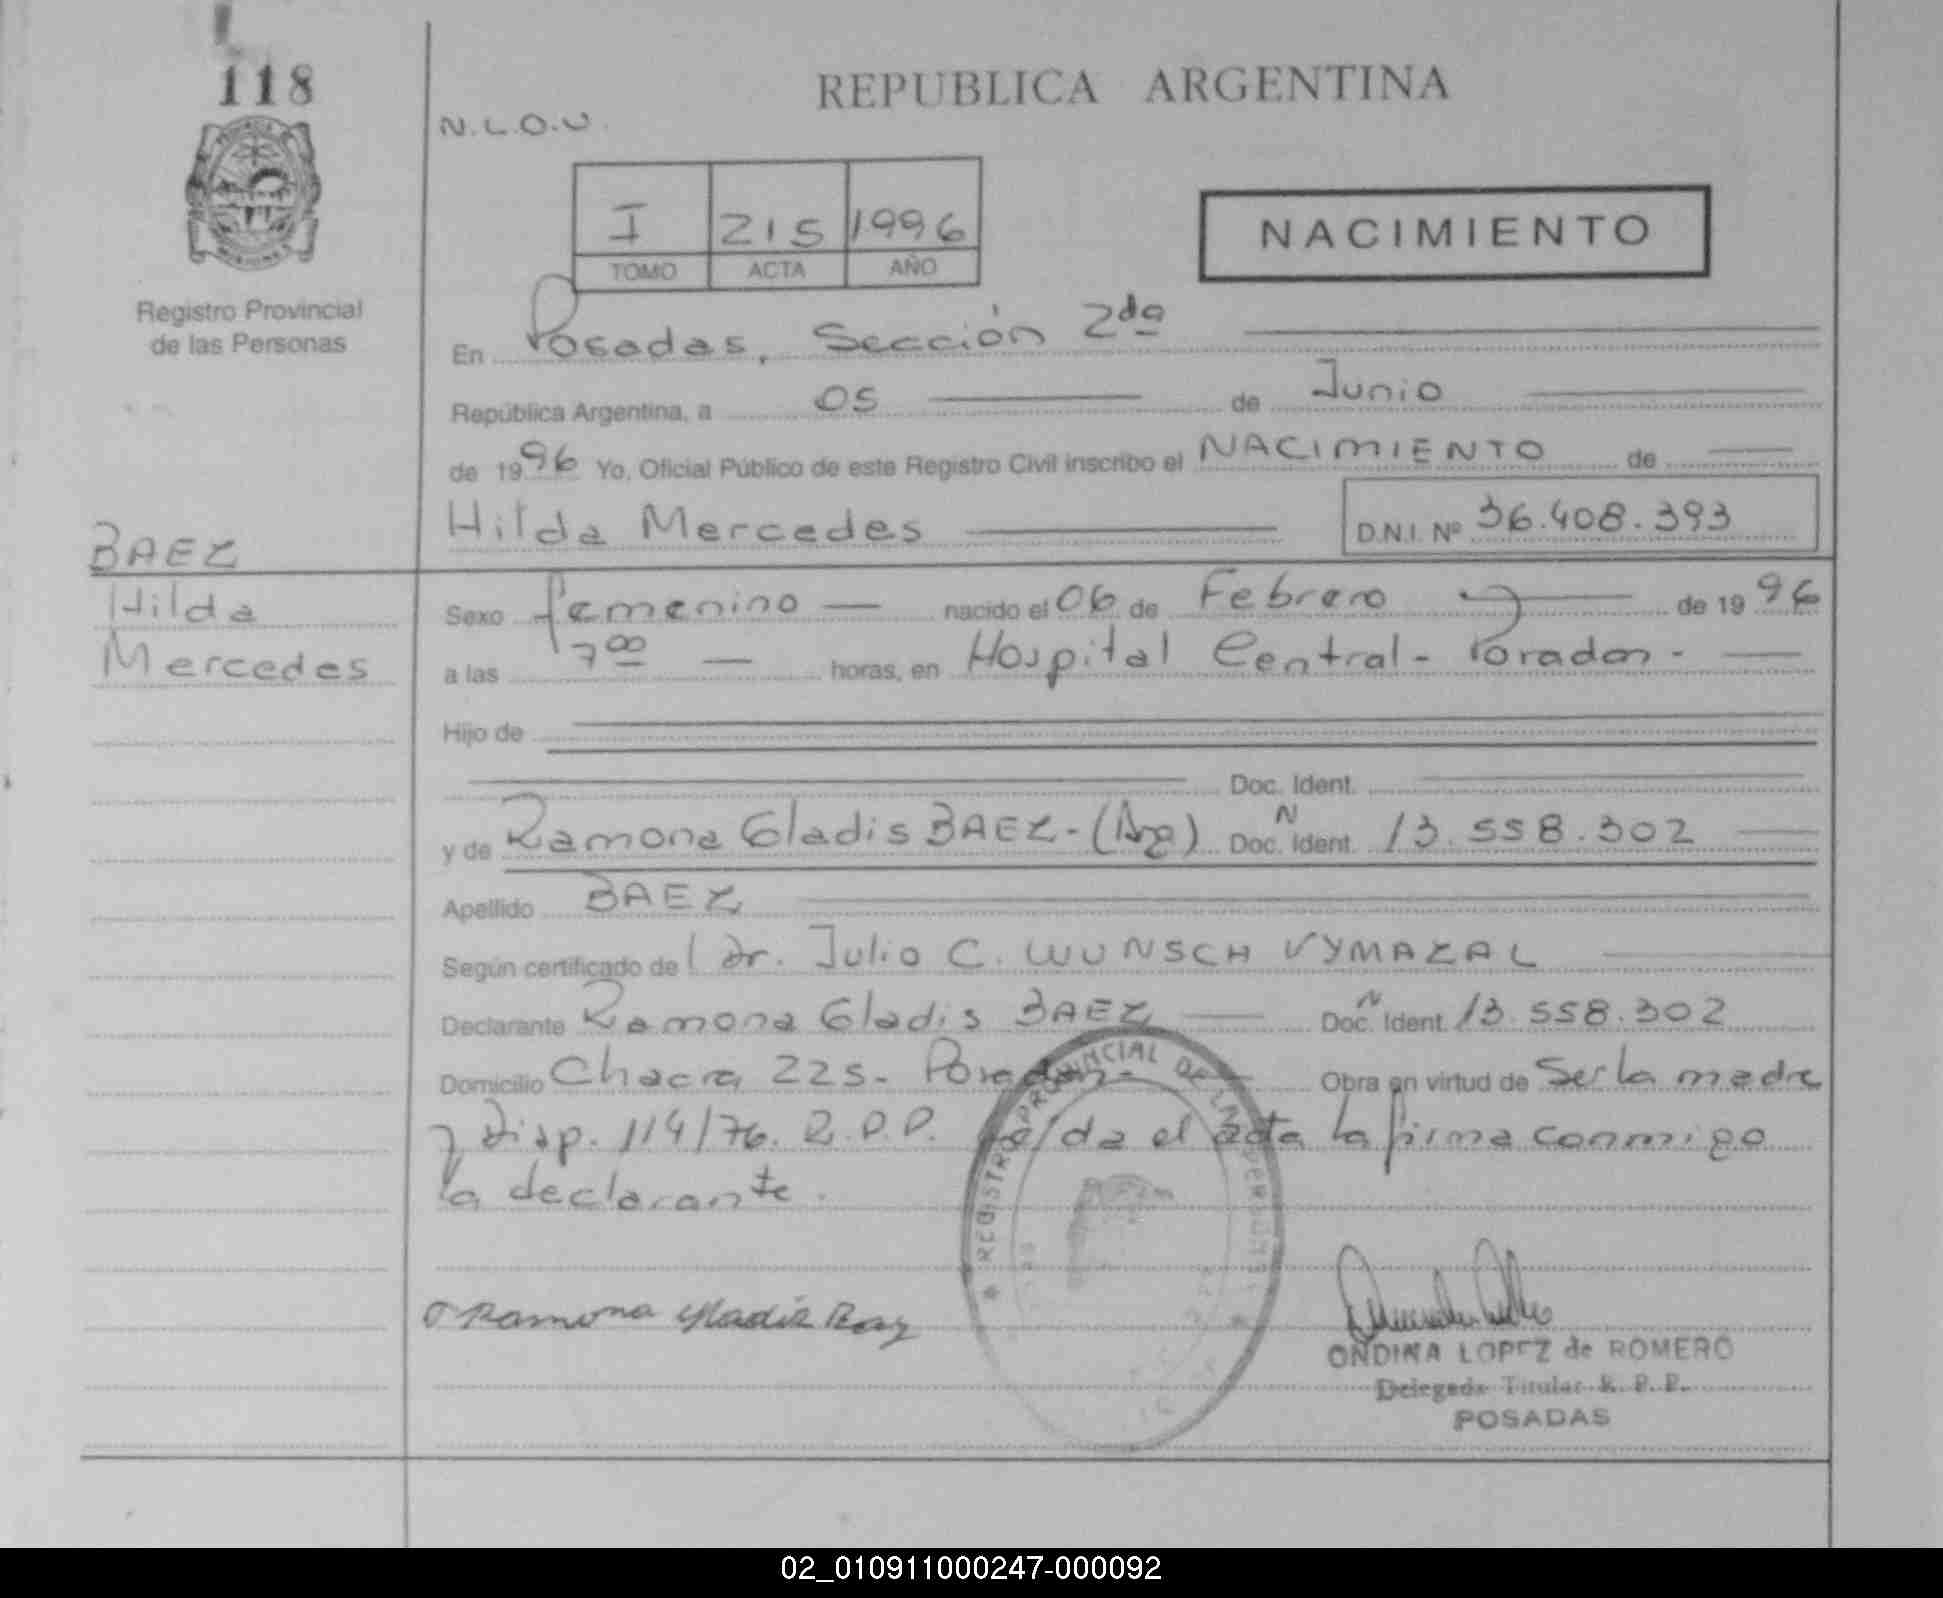 118
REPUBLICA ARGENTINA
N.L.O.U.
I 215 1996
TOMO ACTA AÑO
NACIMIENTO
Registro Provincial
de las Personas
En Posadas, Sección 2da
República Argentina, a 05 de Junio
de 1996 Yo, Oficial Público de este Registro Civil inscribo el NACIMIENTO de
Hilda Mercedes D.N.I. Nº 36.408.393
BAEZ
Hilda
Mercedes
Sexo femenino nacido el 06 de Febrero de 1996
a las 7 00 horas, en Hospital Central - Posadas -
Hijo de
Doc. Ident.
y de Ramona Gladis BAEZ - (Arg) Doc. N Ident. 13.558.302
Apellido BAEZ
Según certificado del Dr. Julio C. WUNSCH VYMAZAL
Declarante Ramona Gladis BAEZ Doc. N Ident. 13.558.302
Domicilio Chacra 225 - Posadas - Obra en virtud de Ser la madre
y Disp. 114/76. R.P.P. leída el acta la firma conmigo
la declarante.
REGISTRO PROVINCIAL DE LAS PERSONAS
Ramona Gladis Baez
ONDINA LOPEZ de ROMERO
Delegada Titular R. P. P.
POSADAS
02_010911000247-000092